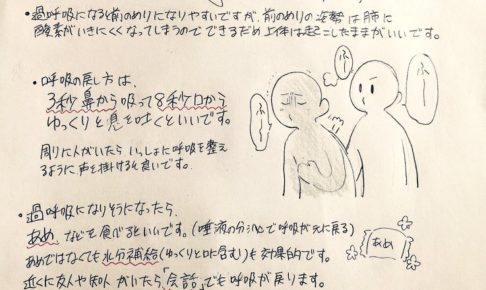 ・過呼吸になると前のめりになりやすいですが、前のめりの姿勢は肺に
酸素がいきにくくなってしまうのでできるだめ上体は起こしたままがいいです。
・呼吸の戻し方は、
3秒鼻から吸って8秒口から
ゆっくりと息を吐くといいです。
周りに人がいたらいっしょに呼吸を整え
るように声を掛けるも良いです。
ふー
ふー
ふー
・過呼吸になりそうになったら、
あめ、などを食べるといいです。(唾液の分泌で呼吸が元に戻る)
あめではなくても水分補給(ゆっくりと口に含む)も効果的です。
近くに友人や知人がいたら「会話」でも呼吸が戻ります。
あめ